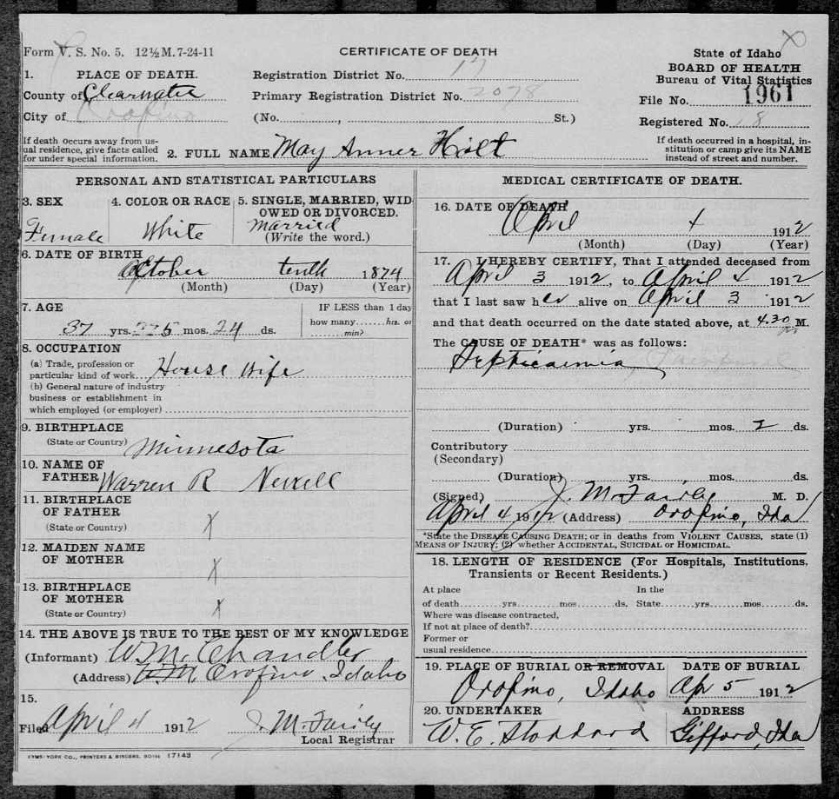 Form V. S. No. 5. 12½ M. 7-24-11
CERTIFICATE OF DEATH
State of Idaho
BOARD OF HEALTH
Bureau of Vital Statistics
File No. 1961
Registered No. 18
1. PLACE OF DEATH.
County of Clearwater
City of Orofino
Registration District No. 17
Primary Registration District No. 2078
(No. , St.)
If death occurs away from us-
ual residence, give facts called
for under special information.
2. FULL NAME May Anner Holt
If death occurred in a hospital, in-
stitution or camp give its NAME
instead of street and number.
PERSONAL AND STATISTICAL PARTICULARS
3. SEX
Female
4. COLOR OR RACE
White
5. SINGLE, MARRIED, WID
OWED OR DIVORCED.
Married
(Write the word.)
6. DATE OF BIRTH
October tenth 1874
(Month) (Day) (Year)
7. AGE
37 yrs. 5 mos. 24 ds.
IF LESS than 1 day
how many hrs. or
min?
8. OCCUPATION
(a) Trade, profession or
particular kind of work House Wife
(b) General nature of industry
business or establishment in
which employed (or employer)
9. BIRTHPLACE
(State or Country) Minnesota
10. NAME OF
FATHER Warren R
11. BIRTHPLACE
OF FATHER
(State or Country) X
12. MAIDEN NAME
OF MOTHER X
13. BIRTHPLACE
OF MOTHER
(State or Country) X
14. THE ABOVE IS TRUE TO THE BEST OF MY KNOWLEDGE
(Informant) W. M. Chandler
(Address) Orofino, Idaho
15.
Filed April 4 1912 J. M. Fairly
Local Registrar
SYMS-YORK CO., PRINTERS & BINDERS, BOISE 17143
MEDICAL CERTIFICATE OF DEATH.
16. DATE OF DEATH
April 4 1912
(Month) (Day) (Year)
17. I HEREBY CERTIFY, That I attended deceased from
April 3 1912, to April 4 1912
that I last saw her alive on April 3 1912
and that death occurred on the date stated above, at 4.30 M.
The CAUSE OF DEATH* was as follows:
Septicaemia
(Duration) yrs. mos. 2 ds.
Contributory
(Secondary)
(Duration) yrs. mos. ds.
(Signed) J. M. Fairly M. D.
April 4 1912 (Address) Orofino, Ida
*State the DISEASE CAUSING DEATH; or in deaths from VIOLENT CAUSES, state (1)
MEANS OF INJURY; (2) whether ACCIDENTAL, SUICIDAL or HOMICIDAL.
18. LENGTH OF RESIDENCE (For Hospitals, Institutions,
Transients or Recent Residents.)
At place In the
of death yrs. mos. ds. State yrs. mos. ds.
Where was disease contracted,
If not at place of death?
Former or
usual residence
19. PLACE OF BURIAL OR REMOVAL
Orofino, Idaho
DATE OF BURIAL
Ap 5 1912
20. UNDERTAKER
W. E. Stoddard
ADDRESS
Gifford, Ida